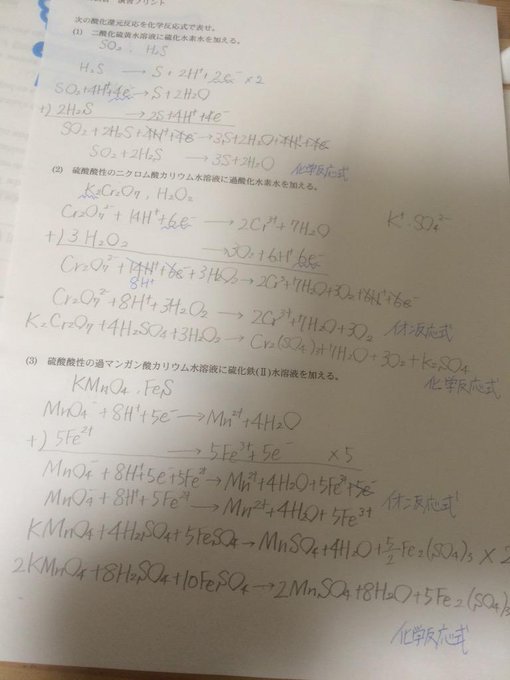 演習プリント
次の酸化還元反応を化学反応式で表せ。
(1) 二酸化硫黄水溶液に硫化水素水を加える。
SO₂ . H₂S
H₂S → S + 2H⁺ + 2e⁻ ×2
SO₂+4H⁺+4e⁻ → S+2H₂O
+) 2H₂S → 2S+4H⁺+4e⁻
SO₂+2H₂S+4H⁺+4e⁻ → 3S+2H₂O+4H⁺+4e⁻
SO₂+2H₂S → 3S+2H₂O 化学反応式
(2) 硫酸酸性のニクロム酸カリウム水溶液に過酸化水素水を加える。
K₂Cr₂O₇ . H₂O₂
Cr₂O₇²⁻ + 14H⁺ + 6e⁻ → 2Cr³⁺ + 7H₂O K⁺ SO₄²⁻
+) 3H₂O₂ → 3O₂+6H⁺ 6e⁻
Cr₂O₇²⁻ + 14H⁺ + 6e⁻ + 3H₂O₂ → 2Cr³⁺+7H₂O+3O₂+6H⁺+6e⁻
8H⁺
Cr₂O₇²⁻ + 8H⁺ + 3H₂O₂ → 2Cr³⁺+7H₂O+3O₂ イオン反応式
K₂Cr₂O₇+4H₂SO₄+3H₂O₂ → Cr₂(SO₄)₃+7H₂O+3O₂+K₂SO₄
化学反応式
(3) 硫酸酸性の過マンガン酸カリウム水溶液に硫化鉄(Ⅱ)水溶液を加える。
KMnO₄ . FeS
MnO₄⁻ + 8H⁺+5e⁻ → Mn²⁺+4H₂O
+) 5Fe²⁺ → 5Fe³⁺+5e⁻ ×5
MnO₄⁻ + 8H⁺+5e⁻+5Fe²⁺ → Mn²⁺+4H₂O+5Fe³⁺+5e⁻
MnO₄⁻ + 8H⁺+5Fe²⁺ → Mn²⁺+4H₂O+5Fe³⁺ イオン反応式
KMnO₄+4H₂SO₄+5FeSO₄ → MnSO₄+4H₂O+5/2Fe₂(SO₄)₃ ×2
2KMnO₄+8H₂SO₄+10FeSO₄ → 2MnSO₄+8H₂O+5Fe₂(SO₄)₃
化学反応式